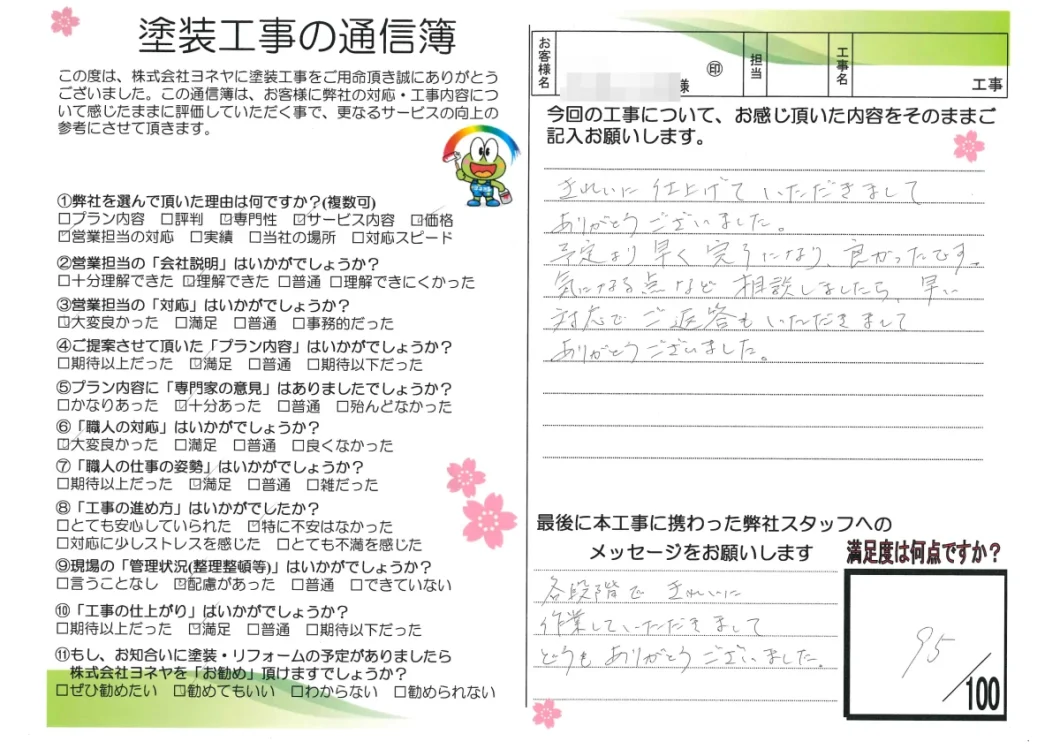 塗装工事の通信簿
この度は、株式会社ヨネヤに塗装工事をご用命頂き誠にありがとう
ございました。この通信簿は、お客様に弊社の対応・工事内容につ
いて感じたままに評価していただく事で、更なるサービスの向上の
参考にさせて頂きます。
①弊社を選んで頂いた理由は何ですか?(複数可)
□プラン内容 □評判 ☑専門性 ☑サービス内容 ☑価格
☑営業担当の対応 □実績 □当社の場所 □対応スピード
②営業担当の「会社説明」はいかがでしょうか?
□十分理解できた ☑理解できた □普通 □理解できにくかった
③営業担当の「対応」はいかがでしょうか?
☑大変良かった □満足 □普通 □事務的だった
④ご提案させて頂いた「プラン内容」はいかがでしょうか?
□期待以上だった ☑満足 □普通 □期待以下だった
⑤プラン内容に「専門家の意見」はありましたでしょうか?
□かなりあった ☑十分あった □普通 □殆んどなかった
⑥「職人の対応」はいかがでしょうか?
☑大変良かった □満足 □普通 □良くなかった
⑦「職人の仕事の姿勢」はいかがでしょうか?
□期待以上だった ☑満足 □普通 □雑だった
⑧「工事の進め方」はいかがでしたか?
□とても安心していられた ☑特に不安はなかった
□対応に少しストレスを感じた □とても不満を感じた
⑨現場の「管理状況(整理整頓等)」はいかがでしょうか?
□言うことなし ☑配慮があった □普通 □できていない
⑩「工事の仕上がり」はいかがでしょうか?
□期待以上だった ☑満足 □普通 □期待以下だった
⑪もし、お知合いに塗装・リフォームの予定がありましたら
株式会社ヨネヤを「お勧め」頂けますでしょうか?
□ぜひ勧めたい ☑勧めてもいい □わからない □勧められない
お客様名 様 ㊞ 担当 工事名 工事
今回の工事について、お感じ頂いた内容をそのままご
記入お願いします。
きれいに仕上げていただきまして
ありがとうございました。
予定より早く完了になり、良かったです。
気になる点など相談しましたら、早い
対応でご返答もいただきまして
ありがとうございました。
最後に本工事に携わった弊社スタッフへの
メッセージをお願いします
各段階できれいに
作業していただきまして
どうもありがとうございました。
満足度は何点ですか?
95/100